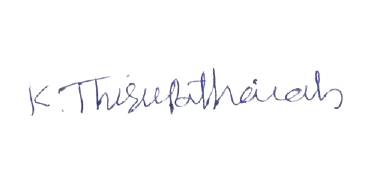 K. Thirupathaiah